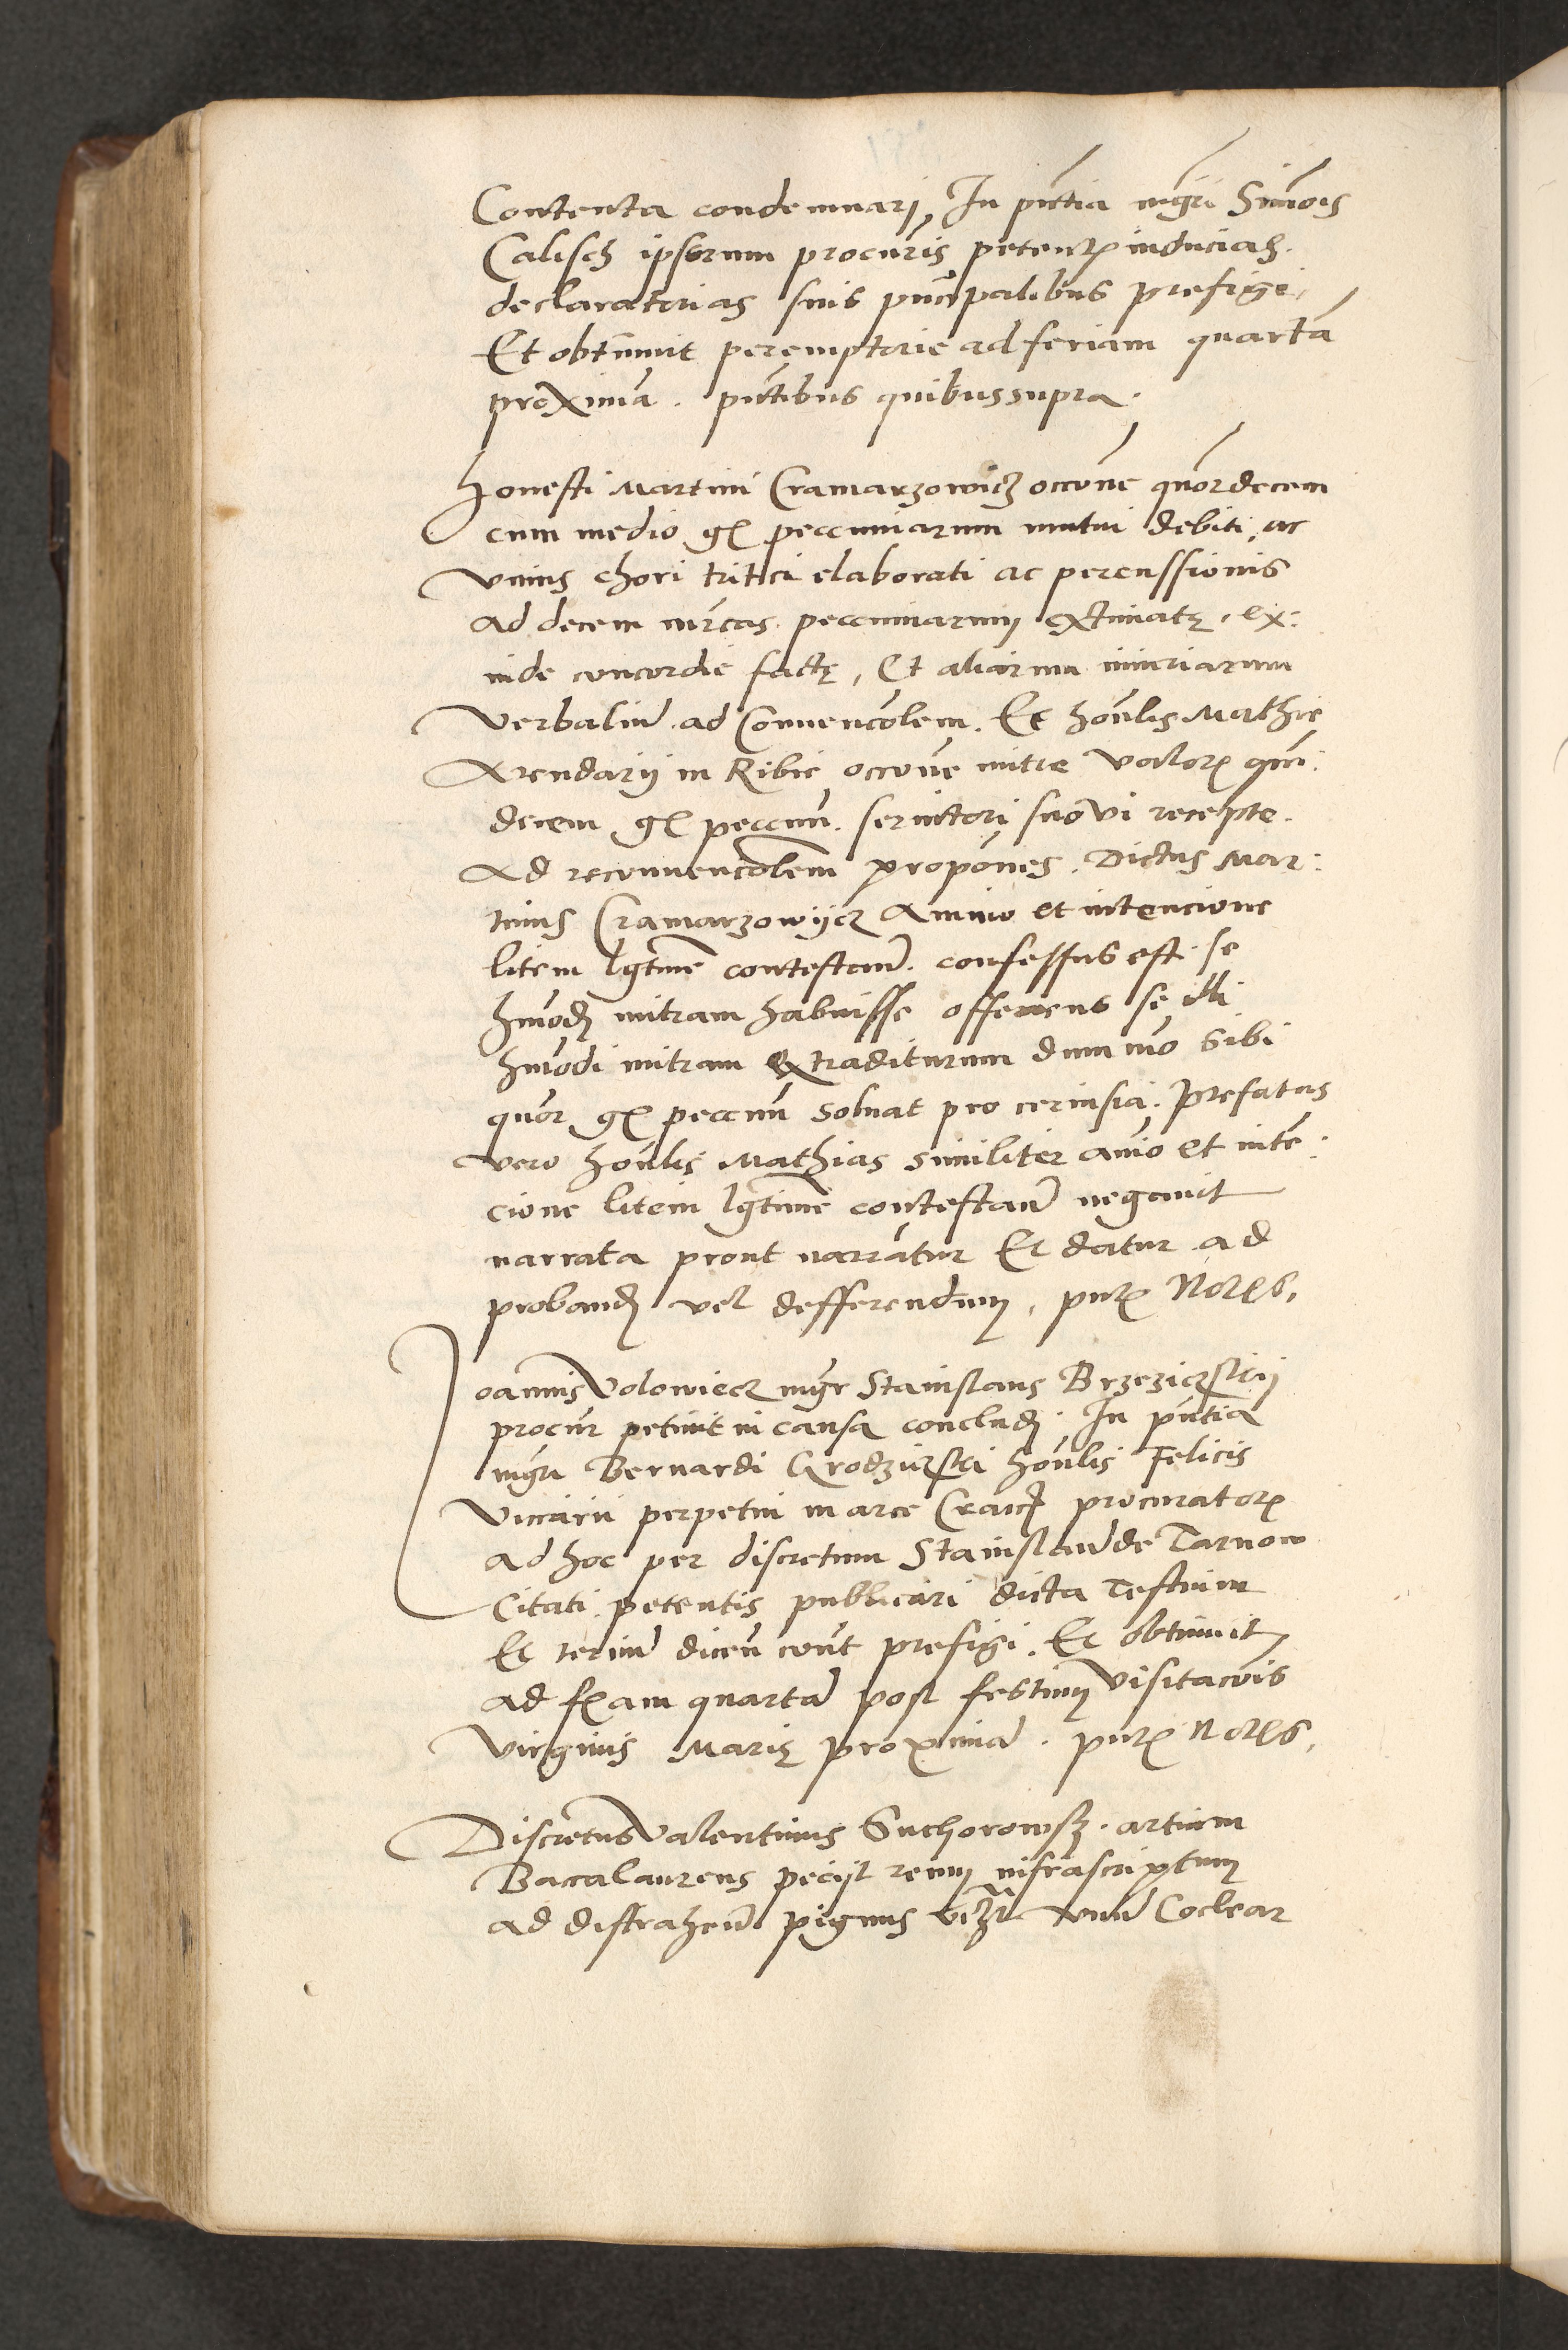 Contenta condemnari, In pñtia mgri Simonis
Calisch ipsorum procuris petent inducias.
declaratorias suis principalibus prefigi,
Et obtinuit peremptorie ad feriam quartã
proximã. pñtibus quibus supra.
Honesti Martini Cramarzowicz occone quordecem
cum medio gr peccuniarum mutui debiti, ac
vnius chori tritici elaborati ac percussionis
ad decem mrcas peccuniarum extimatę, ex:
inde concordie factę, Et aliarum iniuriarum
verbaliũ ad Conuencolem. Et honlis Mathie
Arendarij in Ribie occone mitre valor qui:
decem gr peccun. seruitori suo vi recepte.
Ad reconuencolem propones. Dictus Mar:
tinus Cramarzowijcz Animo et intencione
litem lgtime contestanđ. confessus est se
hmodi mitram habuisse offerens se illi
hmodi mitram extraditurum dummo sibi
quor gr peccun soluat pro ceruisia. Prefatus
vero honlis Mathias similiter aio et inten:
cione litem lgtime contestanđ negauit
narrata prout narrãtur Et datur ad
proband vel defferendum, pntt Notrs.
Joannis Volowiecz mgr Stanislaus Brzeziczskij
procur petiuit in causa concludi. In pñtia
mgri Bernardi Grodziczski honlis Felicis
Viccarii perpetui in arce Cracoŭ procurator
ad hoc per discretum Stanislaũ de Tarnow
Citati petentis publicari dicta Testium
Et termiũ dicen cont prefigi. Et obtinuit
ad feriam quartã post festum Visitacois
Virginis Marię proximã. pntt Notrs.
Discretus Valentinus Suchorowsky artium
Baccalaureus pecijt remu infrascriptum
ad distrahenđ pignus vizt vnũ Coclear